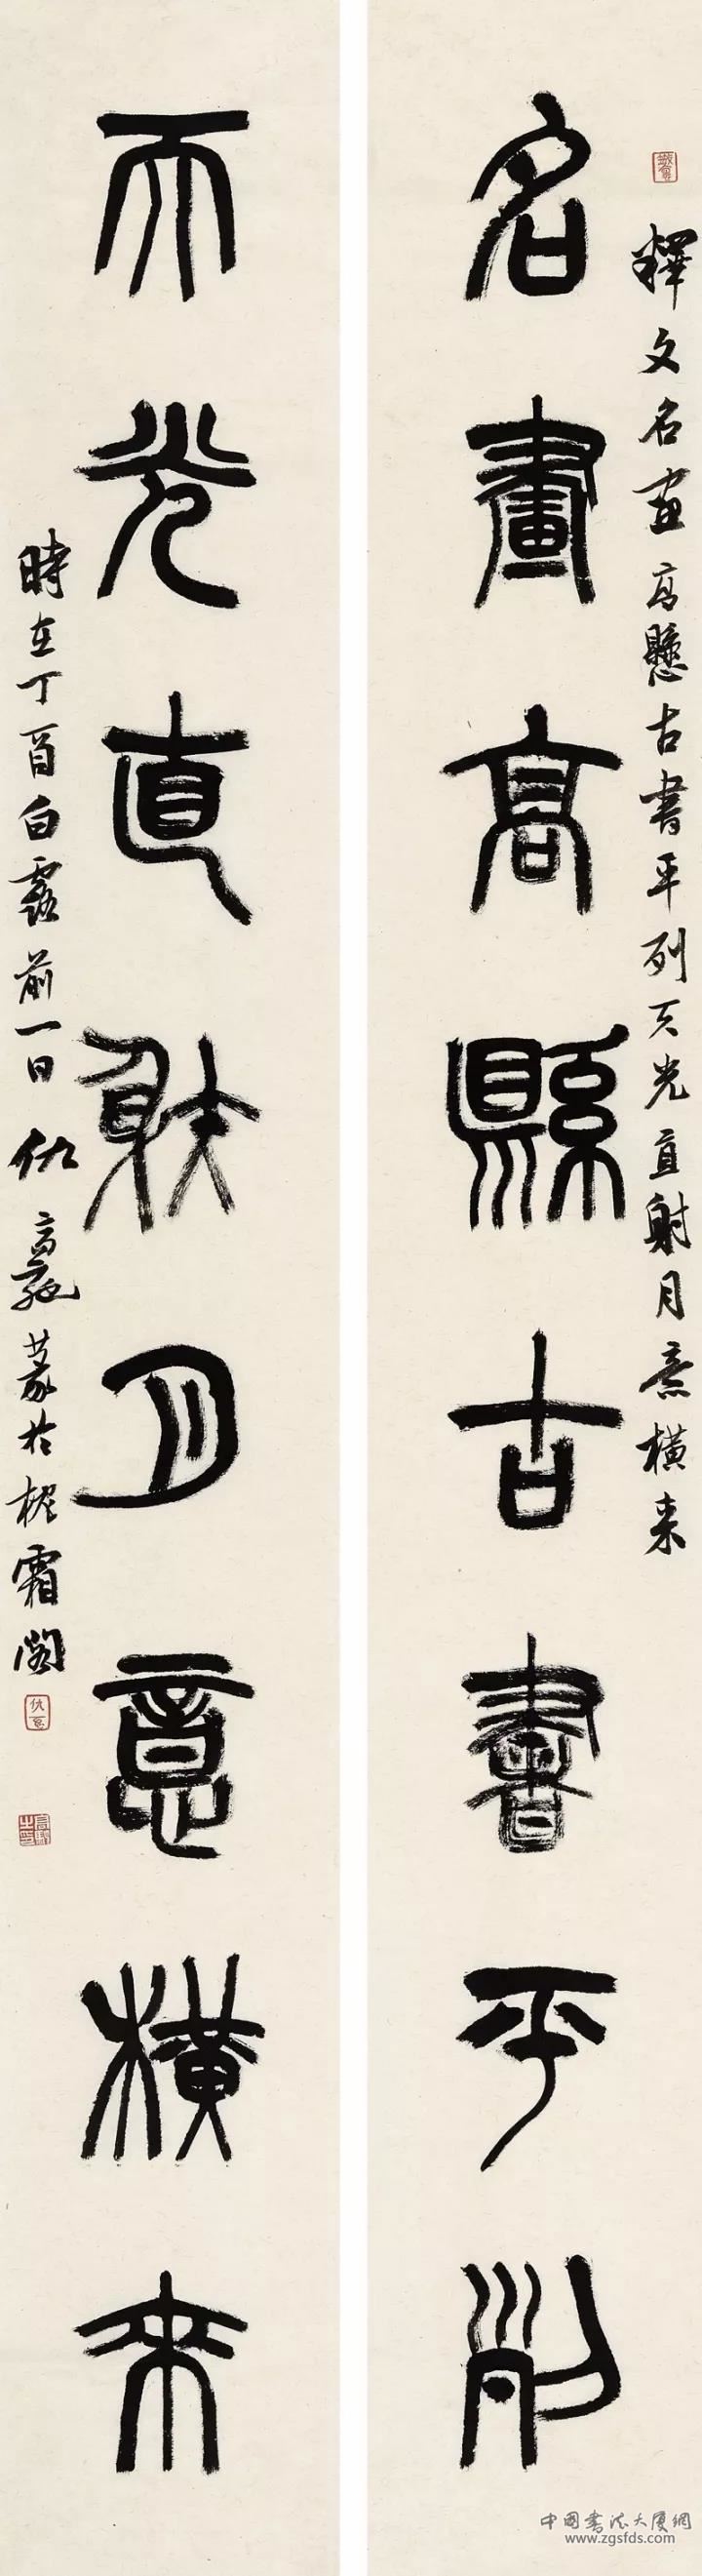 釋文名画高懸古書平列天光直射月意橫来
名畫高縣古書平列
天光直射月意橫來
時在丁酉白露前一日仇高馳篆於霜閣
中國書法大厦網
www.zgsfds.com